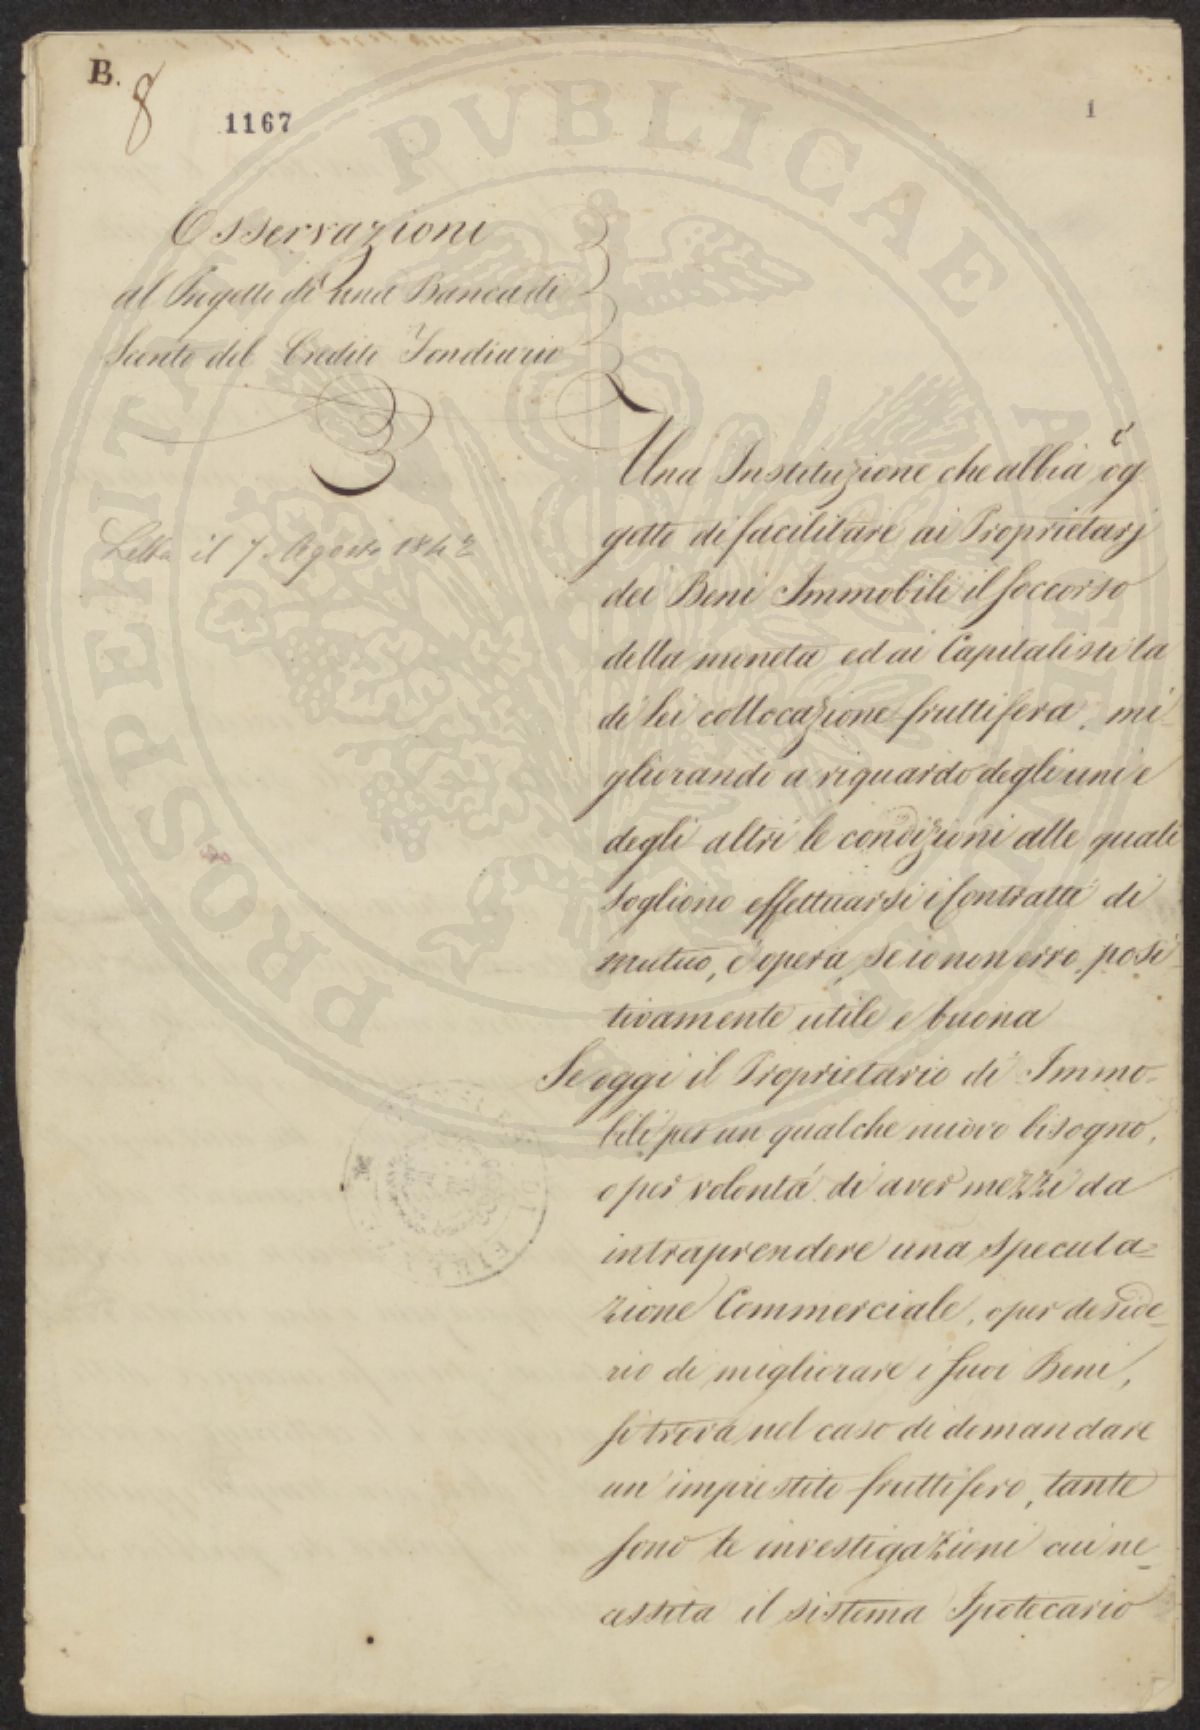 B.
8
1167
1
Osservazioni
al Progetto di una Banca di
Sconto del Credito Fondiario
Letta il 7 Agosto 1842
Una Instituzione che abbia è og
getto di facilitare ai Proprietarj
dei Beni Immobili il soccorso
della moneta ed ai Capitalisti la
di lei collocazione fruttifera, mi-
gliorando a riguardo degli uni e
degli altri le condizioni alle quali
sogliono effettuarsi i Contratti di
mutuo, è opera, se io non erro, posi-
tivamente utile e buona
Se oggi il Proprietario di Immo-
bili per un qualche nuovo bisogno,
o per volontà di aver mezzi da
intraprendere una Specula=
zione Commerciale, o per deside=
rio di migliorare i suoi Beni,
si trova nel caso di domandare
un imprestito fruttifero, tante
sono le investigazioni cui ne=
cessita il sistema Ipotecario
PROSPERITATI PVBLICAE AVGENDAE